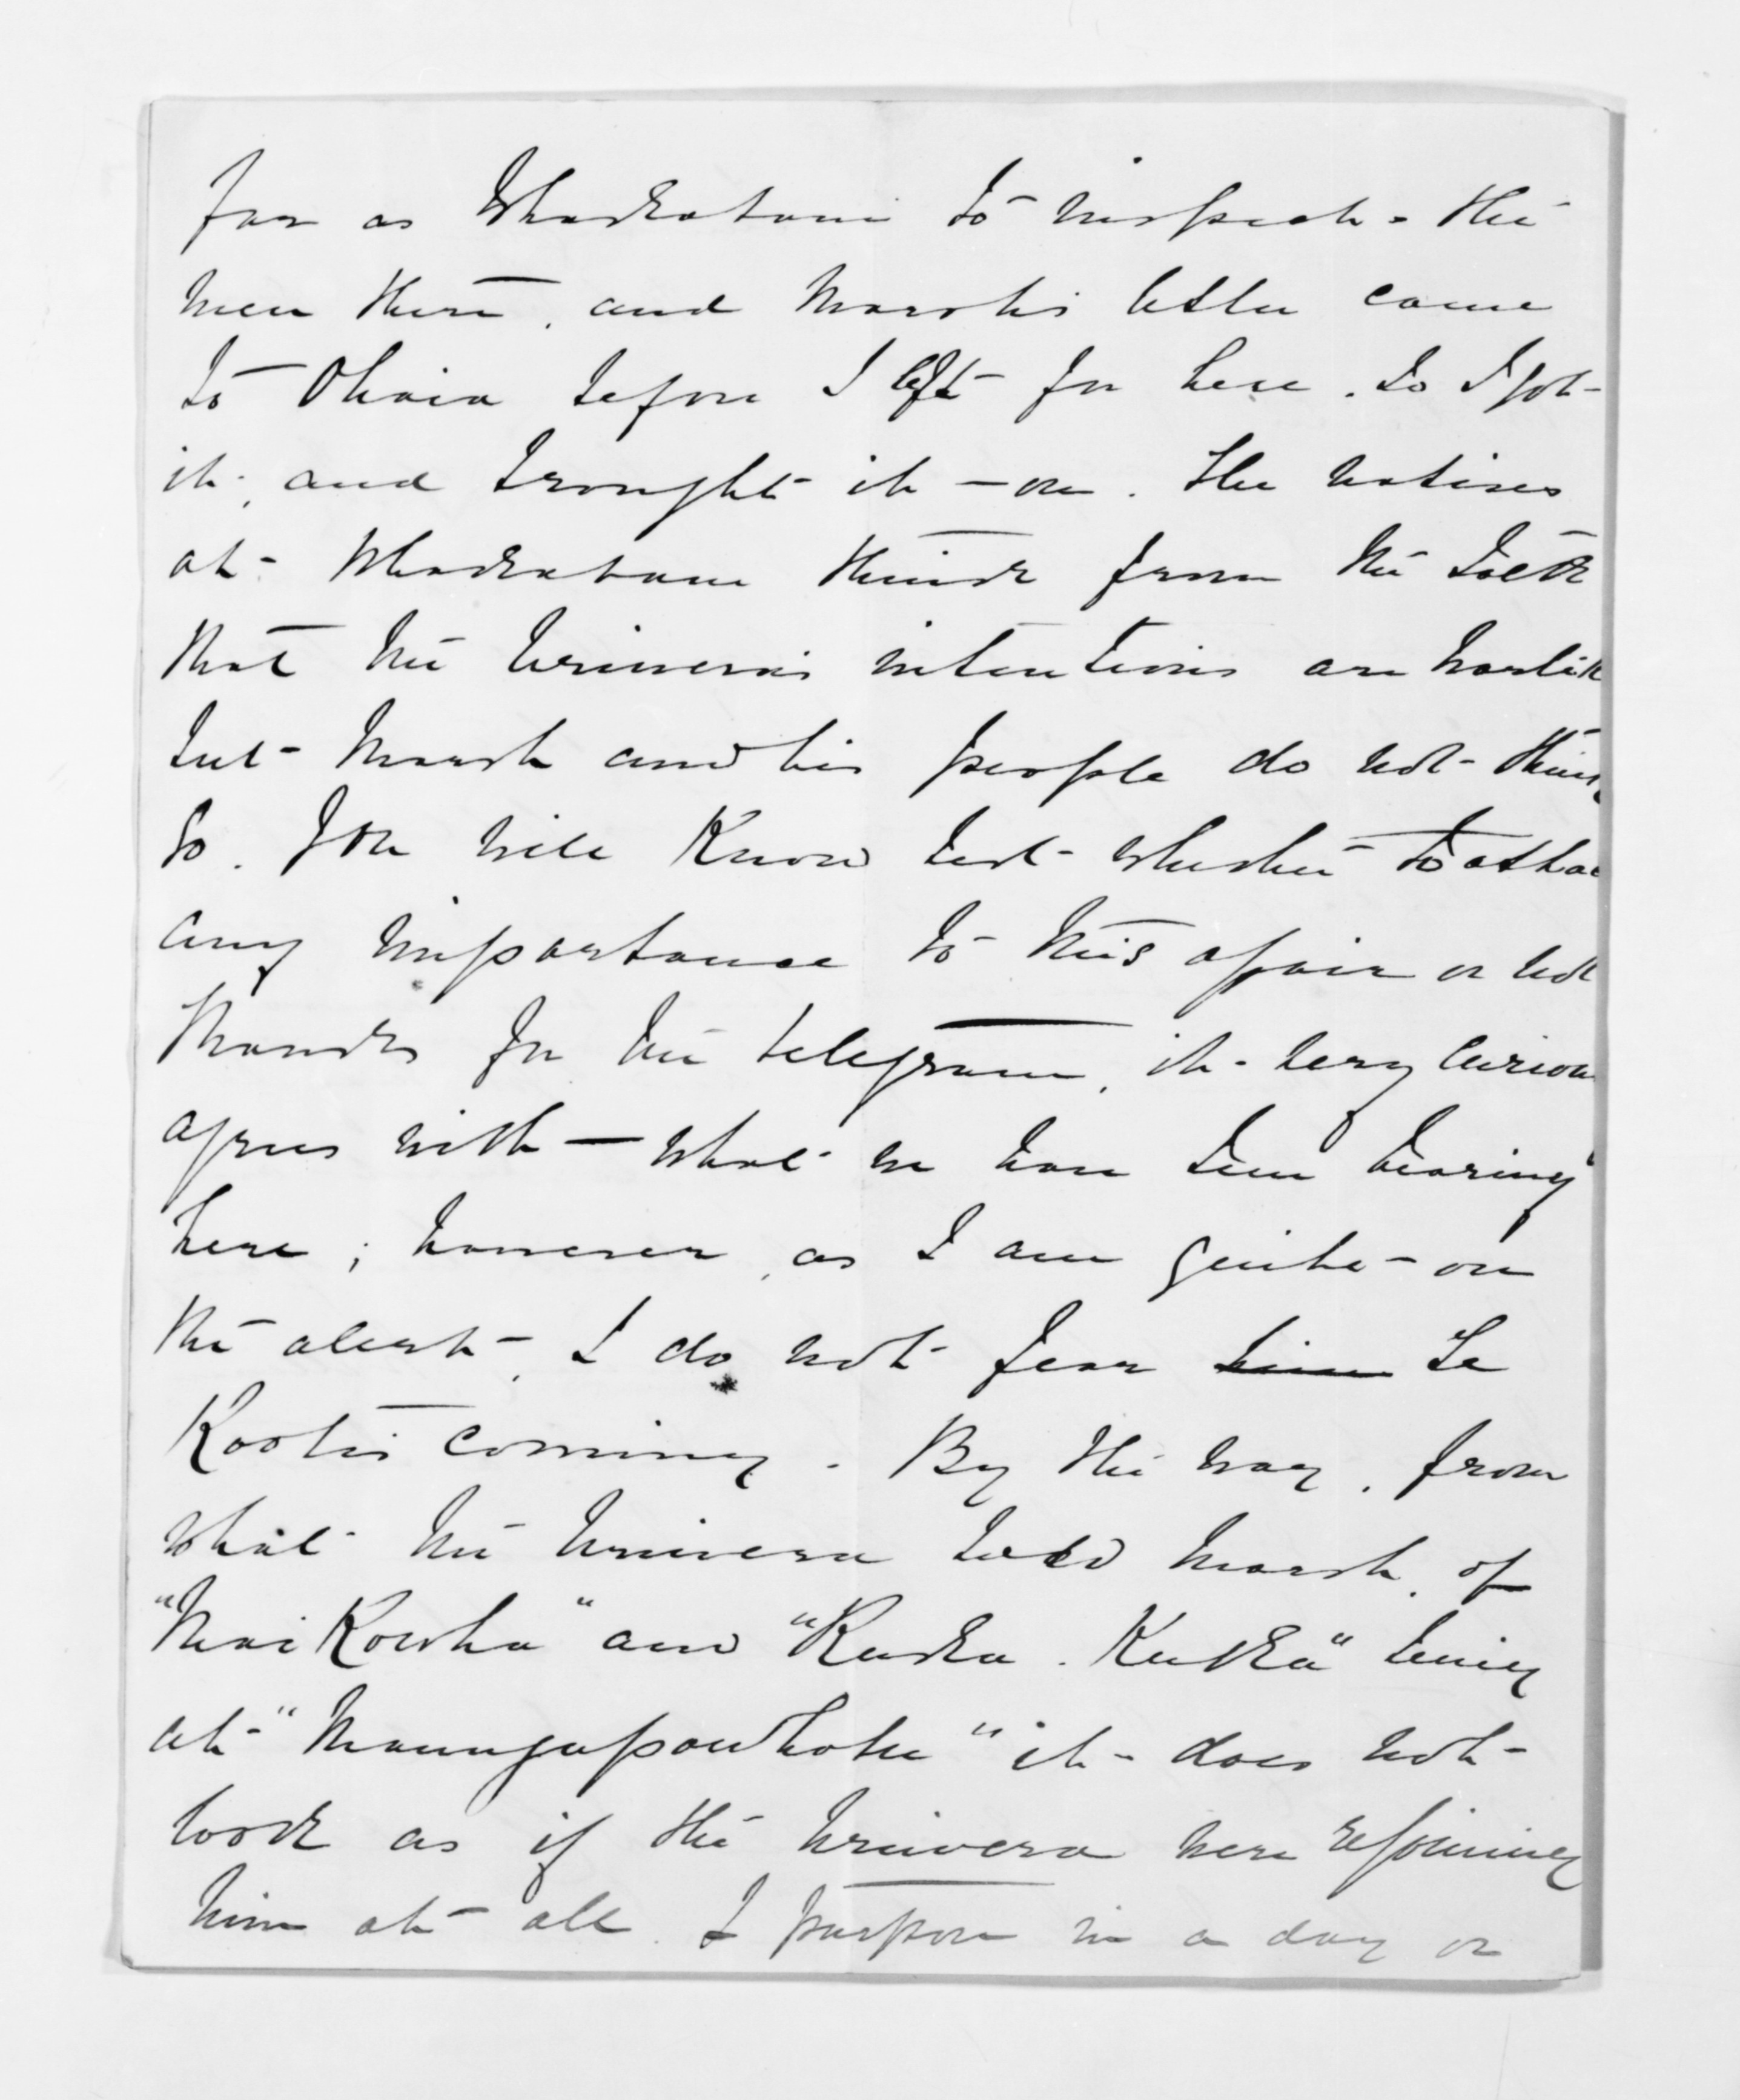 far as Whakatane to inspect the
men there, and Marsh's letter came
to Ohiwa before I left for here. So I got
it, and brought it on. The natives
at Whakatane think from the talk
that the Uriwera's intentions are warlik
but Marsh and his people do not think
so. You will know best whether to attac
any importance to this affair or not
Thanks for the telegram, it very curiou
agrees with what we have been hearing
here; however, as I am quite on
the alert, I do not fear him Te
Kooti's coming. By the way, from
what the Uriwera told Marsh, of
"Kowha" and being
at it does not
look as if the Uriwera were rejoining
him at all. I purpose in a day or